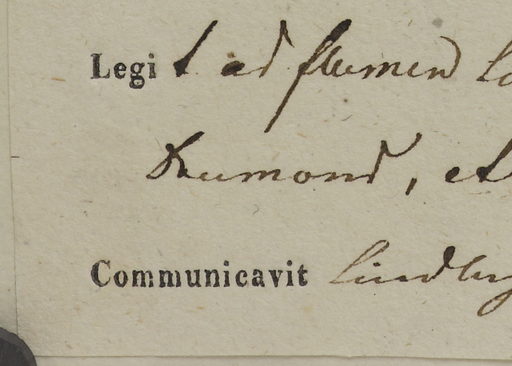 Legit ad flumen
Drumond, et
Communicavit Lindley